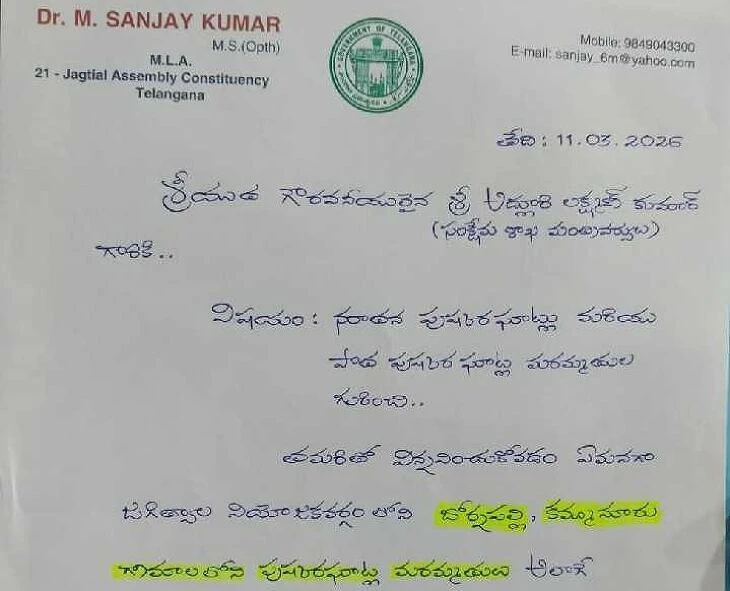 Dr. M. SANJAY KUMAR
M.S.(Opth)
M.L.A.
21 - Jagtial Assembly Constituency
Telangana
GOVERNMENT OF TELANGANA
Mobile: 9849043300
E-mail: sanjay_6m@yahoo.com
తేది : 11.03.2026
శ్రీయుత గౌరవనీయులైన శ్రీ అడ్లూరి లక్ష్మణ్ కుమార్
(సంక్షేమ శాఖ మంత్రివర్యులు)
గారికి..
విషయం : నూతన పుష్కరఘాట్లు మరియు
పాత పుష్కర ఘాట్ల మరమ్మతుల
గురించి..
తమరితో విన్నవించుకోవడం ఏమనగా
జగిత్యాల నియోజకవర్గం లోని బోర్నపల్లి, కమ్మునూరు
గ్రామాలలోని పుష్కరఘాట్ల మరమ్మతులు అలాగే